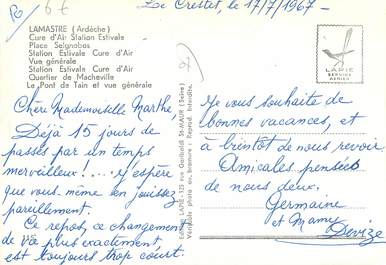 6 €
Le Crestet, le 17/7/1967-
LAMASTRE (Ardèche)
Cure d'Air Station Estivale
Place Seignobos
Station Estivale Cure d'Air
Vue générale
Station Estivale Cure d'Air
Quartier de Macheville
Le Pont de Tain et vue générale
LAPIE
SERVICE
AERIEN
Chère Mademoiselle Marthe,
Déjà 15 jours de
passés par un temps
merveilleux!... J'espère
que vous-même en jouissez
pareillement.
Ce repos, ce changement
de vie plus exactement,
est toujours trop court.
Editions LAPIE - 125 rue Garibaldi St-MAUR (Seine)
Véritable photo en Bromure : Reprod. Interdite.
Je vous souhaite de
bonnes vacances, et
à bientôt de nous revoir.
Amicales pensées
de nous deux.
Germaine
et Mamy
Devize